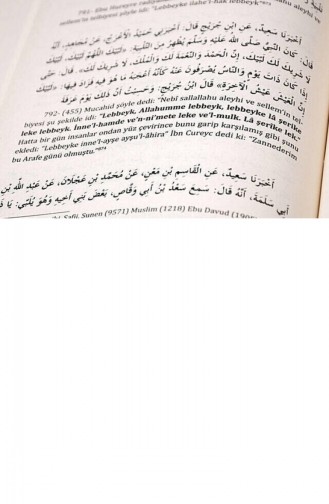 791- Ebu Hureyre
sellem'in telbiyesi şöyle idi: "Lebbeyke ilahe'l-hak lebbeyk"
أَخْبَرَنَا سَعِيدٌ، عَنِ ابْنِ جُرَيْجٍ قَالَ: أَخْبَرَنِي حُمَيْدٌ الْأَعْرَجُ، عَنْ مُجَاهِدٍ، أَنَّهُ
قَالَ: كَانَ النَّبِيُّ صَلَّى اللَّهُ عَلَيْهِ وَسَلَّمَ يُظْهِرُ مِنَ التَّلْبِيَةِ: «لَبَّيْكَ اللَّهُمَّ لَبَّيْكَ، لَبَّيْكَ
لَا شَرِيكَ لَكَ لَبَّيْكَ، إِنَّ الْحَمْدَ وَالنِّعْمَةَ لَكَ وَالْمُلْكَ، لَا شَرِيكَ لَكَ». قَالَ: حَتَّى
إِذَا كَانَ ذَاتَ يَوْمٍ وَالنَّاسُ يُصْرَفُونَ عَنْهُ كَأَنَّهُ أَعْجَبَهُ مَا هُوَ فِيهِ فَزَادَ فِيهَا: «لَبَّيْكَ
إِنَّ الْعَيْشَ عَيْشُ الْآخِرَةِ» قَالَ ابْنُ جُرَيْجٍ: وَحَسِبْتُ أَنَّ ذَلِكَ يَوْمَ عَرَفَةَ
792- (455) Mucahid şöyle dedi: "Nebî sallallahu aleyhi ve sellem'in tel-
biyesi şu şekilde idi: "Lebbeyk, Allahumme lebbeyk, lebbeyke lâ şerîke
leke lebbeyk, İnne'l-hamde ve'n-ni'mete leke ve'l-mulk. Lâ şerîke lek."
Hatta bir gün insanlar ondan yüz çevirince bunu garip karşılamış gibi şunu
ekledi: "Lebbeyke inne'l-ayşe ayşu'l-âhira" İbn Cureyc dedi ki: "Zannederim
bu Arafe günü olmuştu."
أَخْبَرَنَا سَعِيدٌ، عَنِ الْقَاسِمِ بْنِ مَعْنٍ، عَنْ مُحَمَّدِ بْنِ عَجْلَانَ، عَنْ عَبْدِ اللَّهِ بْنِ
أَبِي سَلَمَةَ، أَنَّهُ قَالَ: سَمِعَ سَعْدُ بْنُ أَبِي وَقَّاصٍ، بَعْضَ بَنِي أَخِيهِ وَهُوَ يُلَبِّي: يَا ذَا
Şafii, Sunen (9571) Muslim (1218) Ebu Davud